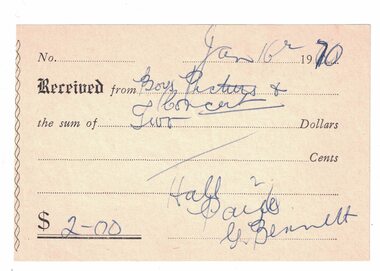 No. Jan 16 1970
Received from Boys Pictures &
Concert
the sum of Two Dollars
Cents
Hall
Paid
$ 2-00 G. Bennett